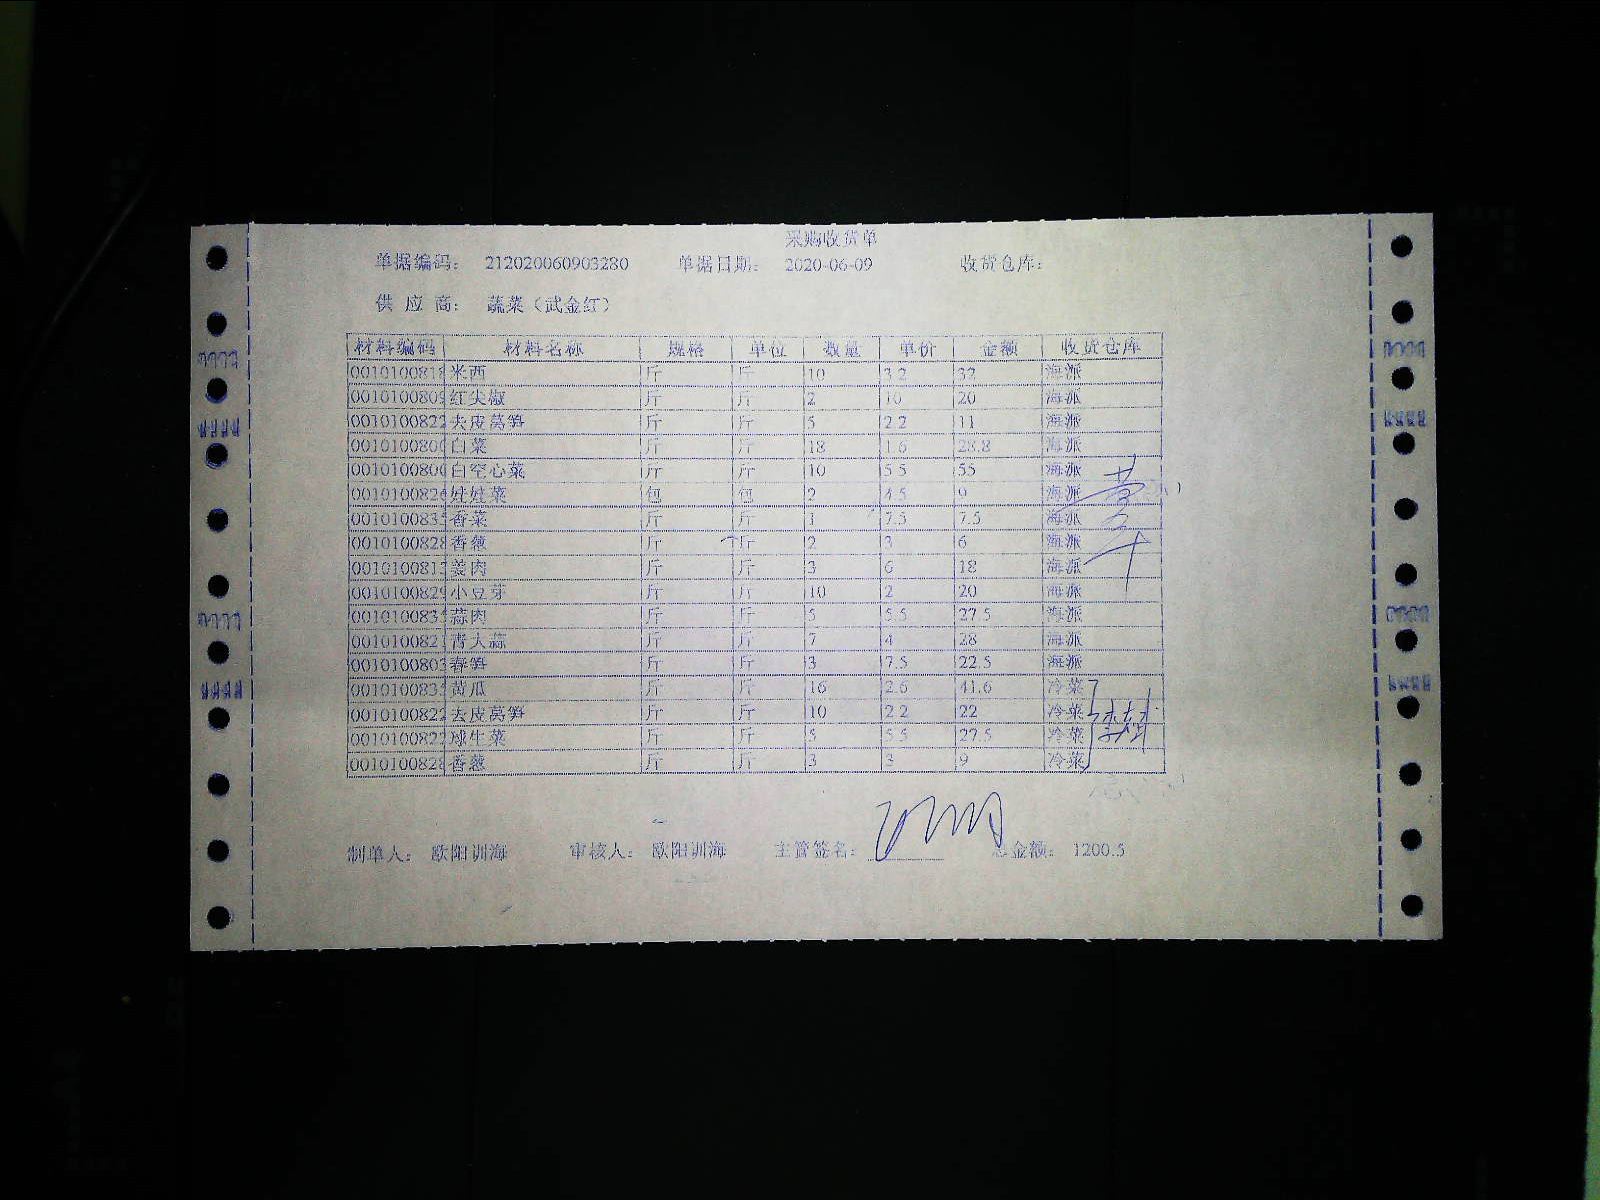 采购收货单
单据编码： 212020060903280 单据日期： 2020-06-09 收货仓库：
供 应 商： 蔬菜（武金红）
材料编码 材料名称 规格 单位 数量 单价 金额 收货仓库
001010081 米西 斤 斤 10 3.2 32 海派
001010080 红尖椒 斤 斤 2 10 20 海派
001010082 去皮莴笋 斤 斤 5 2.2 11 海派
001010080 白菜 斤 斤 18 1.6 28.8 海派
001010080 白空心菜 斤 斤 10 5.5 55 海派
001010082 娃娃菜 包 包 2 4.5 9 海派
001010083 香菜 斤 斤 1 7.5 7.5 海派
001010082 香葱 斤 斤 2 3 6 海派
001010081 姜肉 斤 斤 3 6 18 海派
001010082 小豆芽 斤 斤 10 2 20 海派
001010083 蒜肉 斤 斤 5 5.5 27.5 海派
001010082 青大蒜 斤 斤 7 4 28 海派
001010080 春笋 斤 斤 3 7.5 22.5 海派
001010083 黄瓜 斤 斤 16 2.6 41.6 冷菜
001010082 去皮莴笋 斤 斤 10 2.2 22 冷菜
001010082 球生菜 斤 斤 5 5.5 27.5 冷菜
001010082 香葱 斤 斤 3 3 9 冷菜
制单人： 欧阳训海 审核人： 欧阳训海 主管签名： 总金额： 1200.5